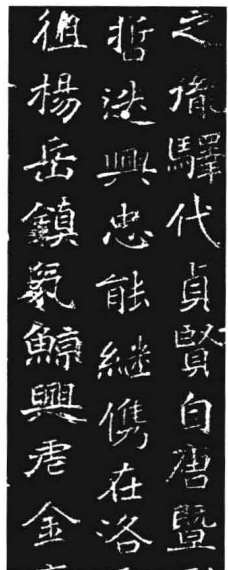 之胤驛代貞賢自唐暨
哲迭興忠能繼儁在洛
徂楊岳鎮氣鯨興虎金